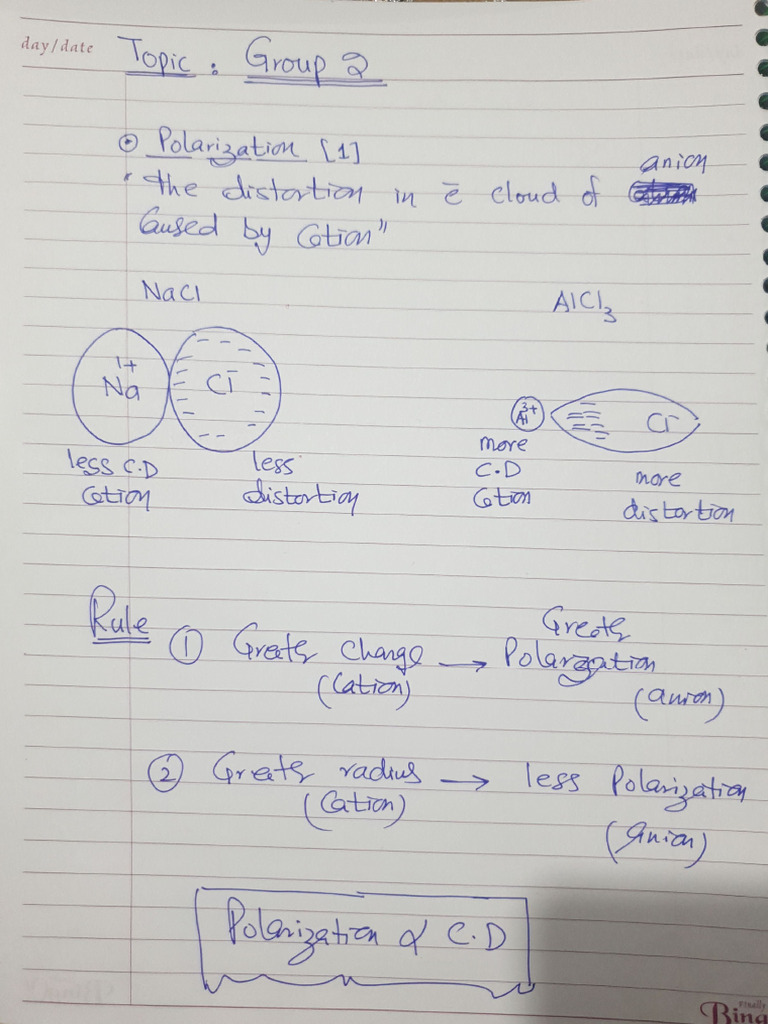 day/date
Topic : Group 2
Polarization [1]
"the distortion in ē cloud of anion
Caused by Cation"
NaCl
AlCl₃
Na¹⁺ Cl⁻
Al³⁺ Cl⁻
less C.D
Cation
less
distortion
more
C.D
Cation
more
distortion
Rule
① Greater charge → Greater Polarization
(Cation) (anion)
② Greater radius → less Polarization
(Cation) (Anion)
Polarization ∝ C.D